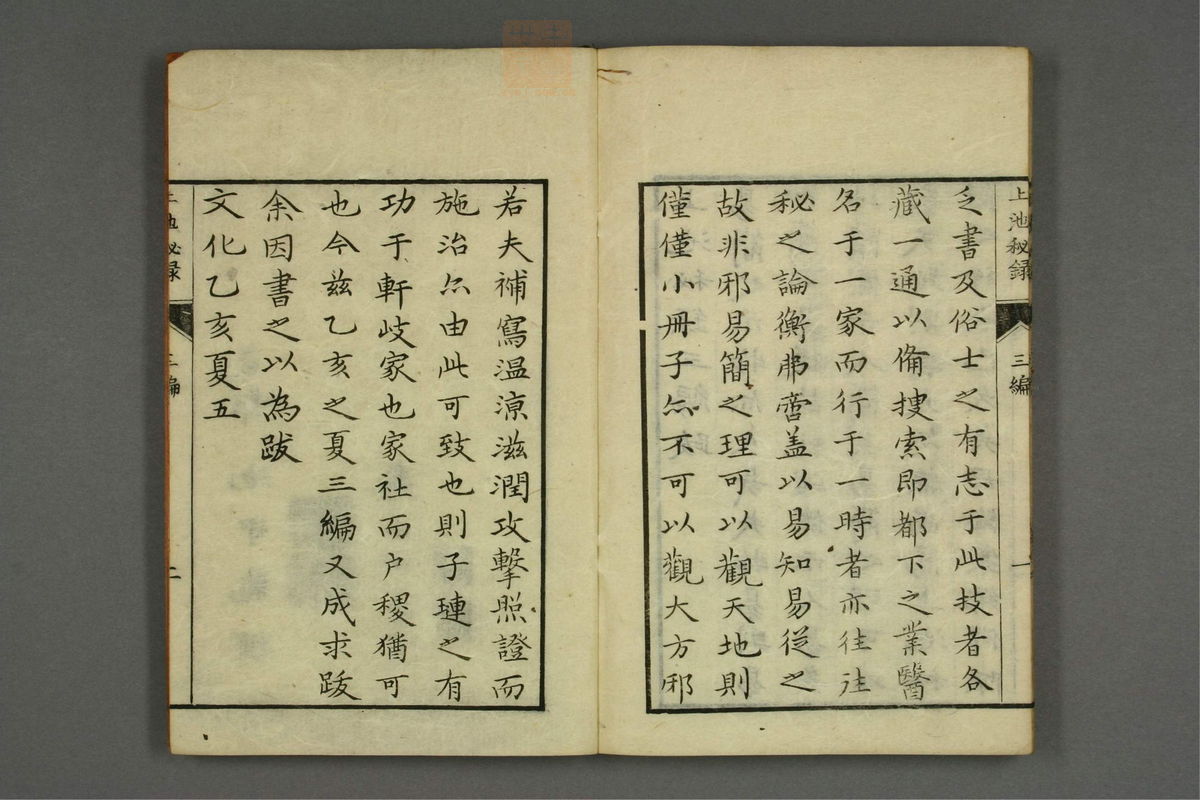 上池秘録
三編
一
乏書及俗士之有志于此技者各
藏一通以備捜索即都下之業醫
名于一家而行于一時者亦往往
秘之論衡帍啻盖以易知易從之
故非邪易簡之理可以觀天地則
僅僅小冊子亦不可以觀大方邪
若夫補寫温凉滋潤攻撃照證而
施治亦由此可致也則子璉之有
功于軒岐家也家社而户稷猶可
也今茲乙亥之夏三編又成求跋
余因書之以為跋
文化乙亥夏五
上池秘録
三編
二